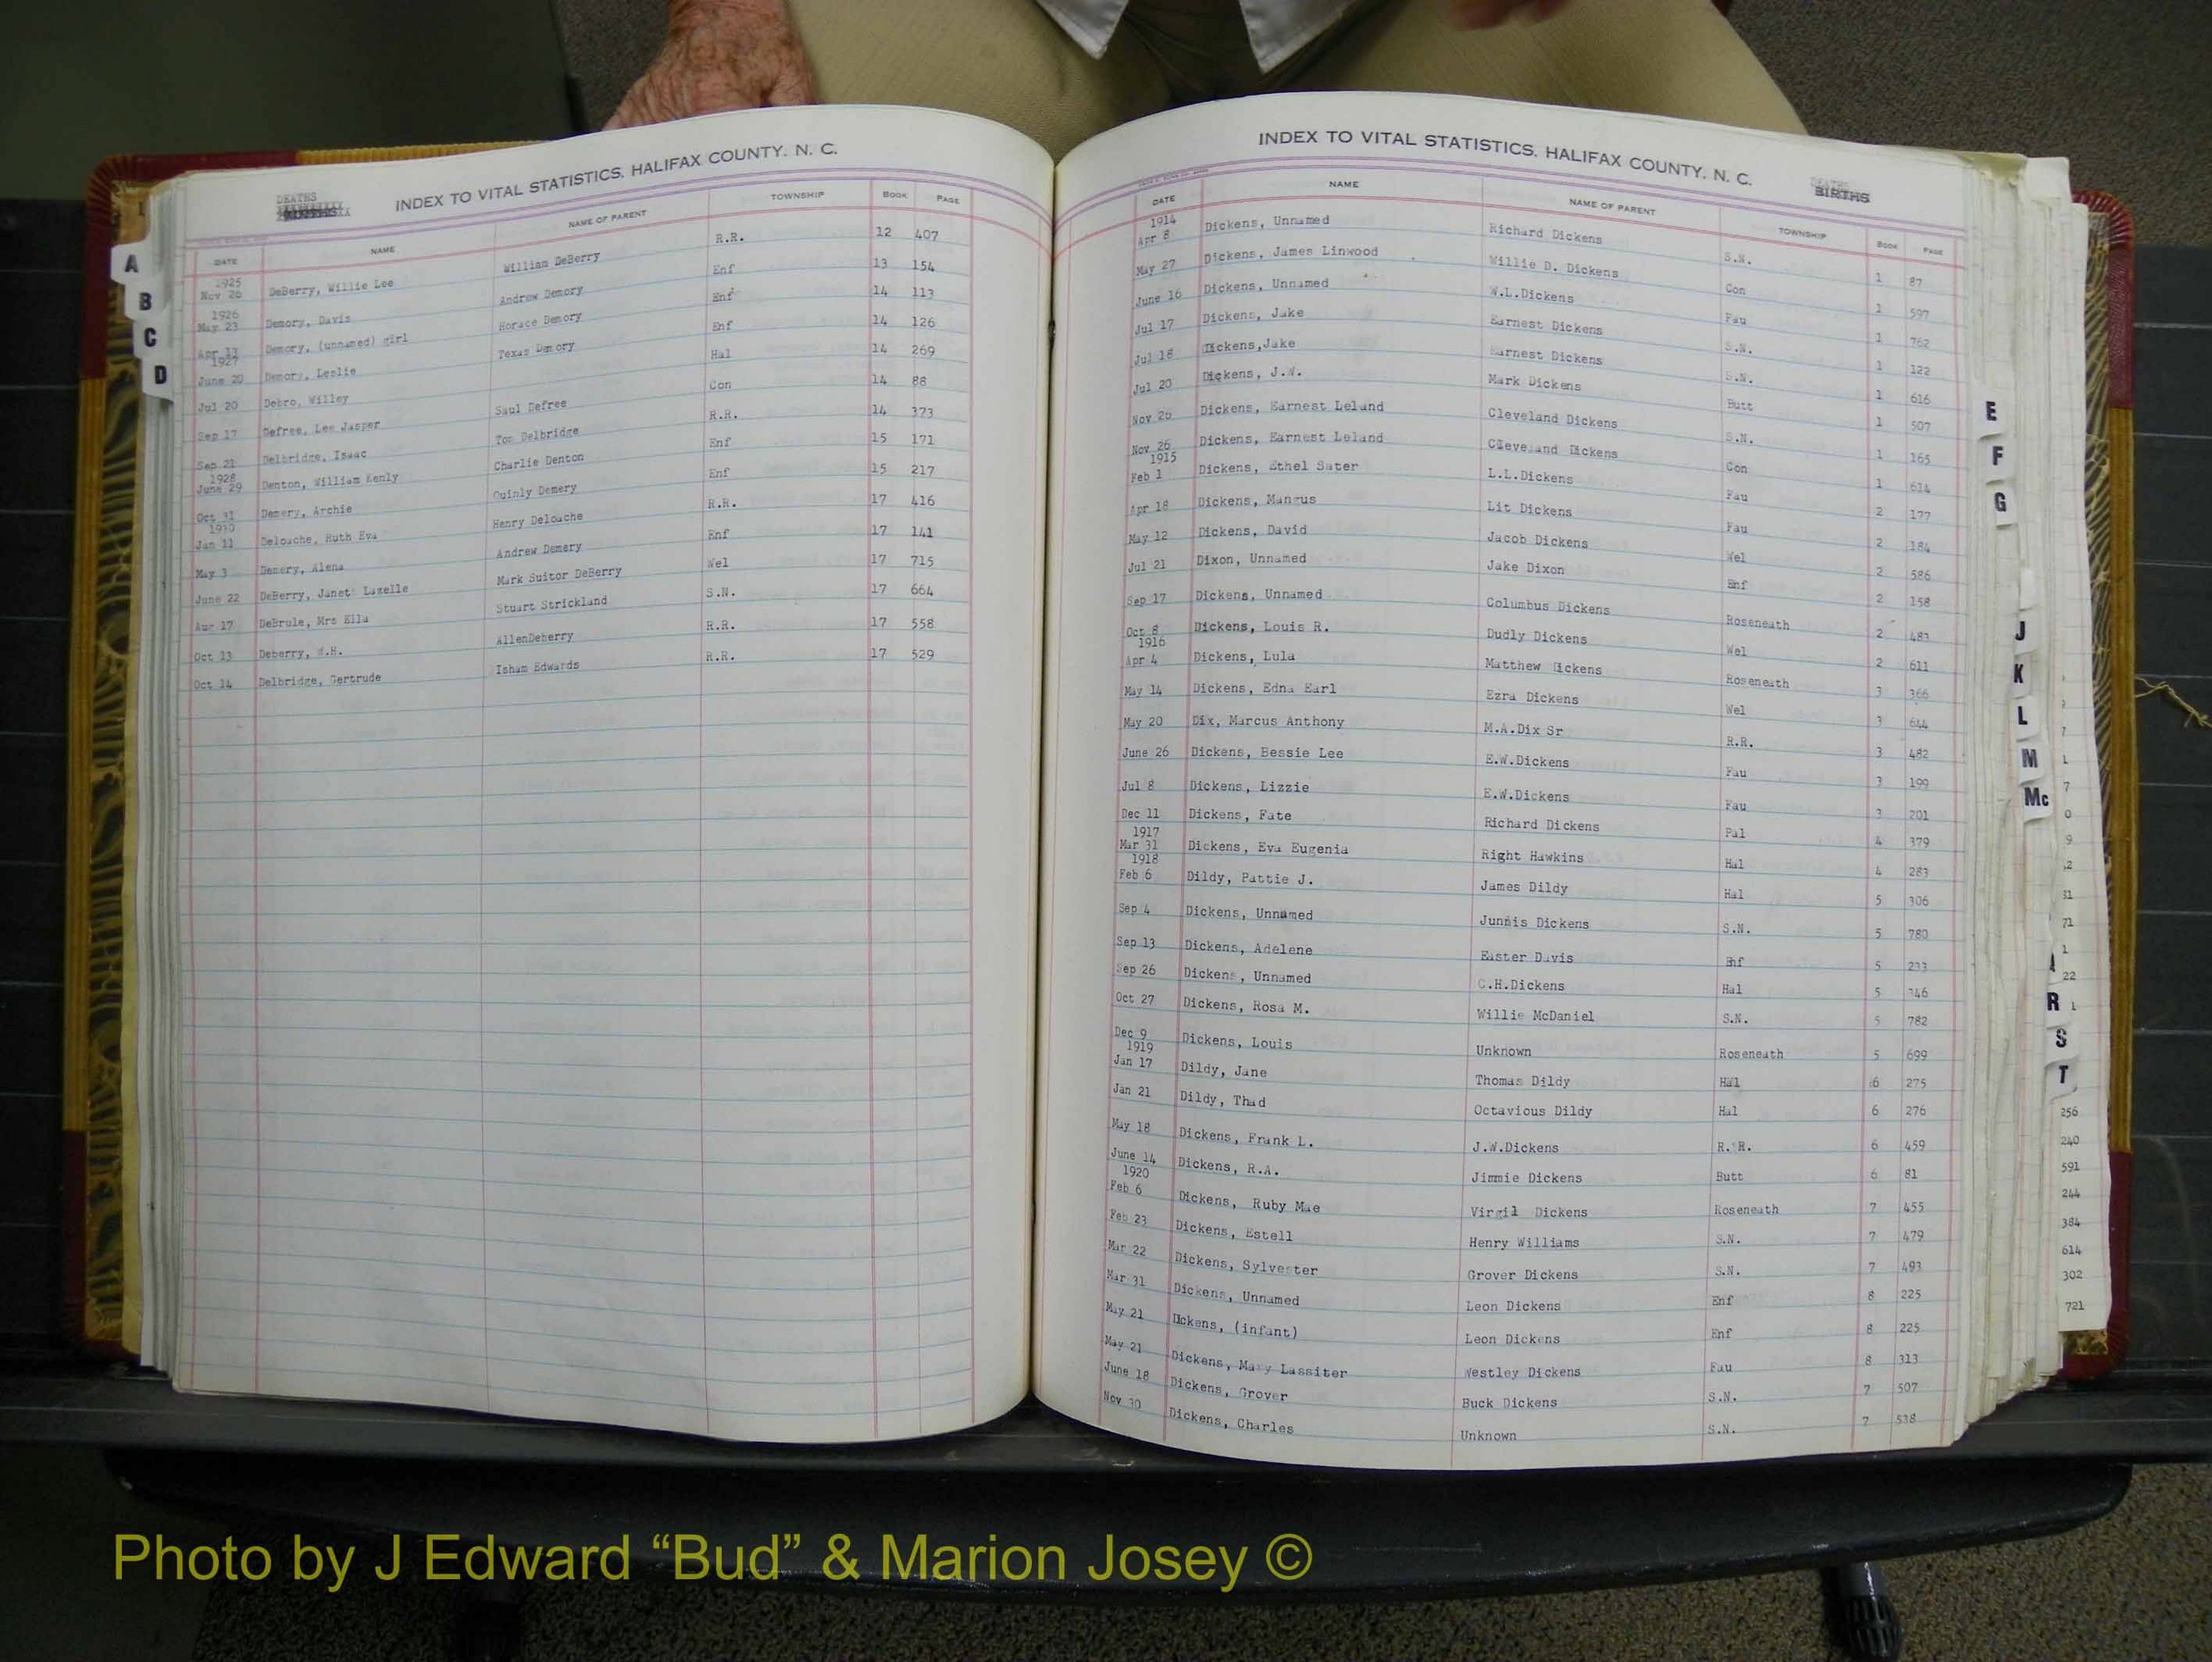 INDEX TO VITAL STATISTICS, HALIFAX COUNTY, N. C.
DEATHS
DATE NAME NAME OF PARENT TOWNSHIP BOOK PAGE
1925
Nov 26 DeBerry, Willie Lee William DeBerry R.R. 12 407
1926
May 23 Demory, Davis Andrew Demory Enf 13 154
Apr 13 Demory, (unnamed) girl Horace Demory Enf 14 113
1927
June 20 Demory, Leslie Texas Demory Enf 14 126
Jul 20 Debro, Willey Hal 14 269
Sep 17 Defree, Lee Jasper Saul Defree Con 14 88
Sep 21 Delbridge, Isaac Tom Delbridge R.R. 14 373
1928
June 29 Denton, William Kenly Charlie Denton Enf 15 171
Oct 31 Demery, Archie Quinly Demery Enf 15 217
1930
Jan 11 Deloache, Ruth Eva Henry Deloache R.R. 17 416
May 3 Demery, Alena Andrew Demery Enf 17 141
June 22 DeBerry, Janet Lazelle Mark Suitor DeBerry Wel 17 715
Aug 17 DeBrule, Mrs Ella Stuart Strickland S.N. 17 664
Oct 13 Deberry, W.H. AllenDeberry R.R. 17 558
Oct 14 Delbridge, Gertrude Isham Edwards R.R. 17 529
A
B
C
D
INDEX TO VITAL STATISTICS, HALIFAX COUNTY, N. C.
DEATHS
BIRTHS
DATE NAME NAME OF PARENT TOWNSHIP BOOK PAGE
1914
Apr 8 Dickens, Unnamed Richard Dickens S.N. 1 87
May 27 Dickens, James Linwood Willie D. Dickens Con 1 597
June 16 Dickens, Unnamed W.L.Dickens Fau 1 762
Jul 17 Dickens, Jake Earnest Dickens S.N. 1 122
Jul 18 Dickens,Jake Earnest Dickens S.N. 1 616
Jul 20 Dickens, J.W. Mark Dickens Butt 1 507
Nov 26 Dickens, Earnest Leland Cleveland Dickens S.N. 1 165
Nov 26 Dickens, Earnest Leland Cleveland Dickens Con 1 614
1915
Feb 1 Dickens, Ethel Sater L.L.Dickens Fau 2 177
Apr 18 Dickens, Mangus Lit Dickens Fau 2 184
May 12 Dickens, David Jacob Dickens Wel 2 586
Jul 21 Dixon, Unnamed Jake Dixon Enf 2 158
Sep 17 Dickens, Unnamed Columbus Dickens Roseneath 2 483
Oct 8 Dickens, Louis R. Dudly Dickens Wel 2 611
1916
Apr 4 Dickens, Lula Matthew Dickens Roseneath 3 366
May 14 Dickens, Edna Earl Ezra Dickens Wel 3 644
May 20 Dix, Marcus Anthony M.A.Dix Sr R.R. 3 482
June 26 Dickens, Bessie Lee E.W.Dickens Fau 3 199
Jul 8 Dickens, Lizzie E.W.Dickens Fau 3 201
Dec 11 Dickens, Fate Richard Dickens Pal 4 379
1917
Mar 31 Dickens, Eva Eugenia Right Hawkins Hal 4 283
1918
Feb 6 Dildy, Pattie J. James Dildy Hal 5 306
Sep 4 Dickens, Unnamed Junnis Dickens S.N. 5 780
Sep 13 Dickens, Adelene Easter Davis Enf 5 233
Sep 26 Dickens, Unnamed C.H.Dickens Hal 5 346
Oct 27 Dickens, Rosa M. Willie McDaniel S.N. 5 782
Dec 9 Dickens, Louis Unknown Roseneath 5 699
1919
Jan 17 Dildy, Jane Thomas Dildy Hal 6 275
Jan 21 Dildy, Thad Octavious Dildy Hal 6 276
May 18 Dickens, Frank L. J.W.Dickens R.R. 6 459
June 14 Dickens, R.A. Jimmie Dickens Butt 6 81
1920
Feb 6 Dickens, Ruby Mae Virgil Dickens Roseneath 7 455
Feb 23 Dickens, Estell Henry Williams S.N. 7 479
Mar 22 Dickens, Sylvester Grover Dickens S.N. 7 493
Mar 31 Dickens, Unnamed Leon Dickens Enf 8 225
May 21 Dickens, (infant) Leon Dickens Enf 8 225
May 21 Dickens, Mary Lassiter Westley Dickens Fau 8 313
June 18 Dickens, Grover Buck Dickens S.N. 7 507
Nov 30 Dickens, Charles Unknown S.N. 7 538
E
F
G
J
K
L
M
Mc
R
S
T
256
240
591
244
384
614
302
721
Photo by J Edward “Bud” & Marion Josey ©